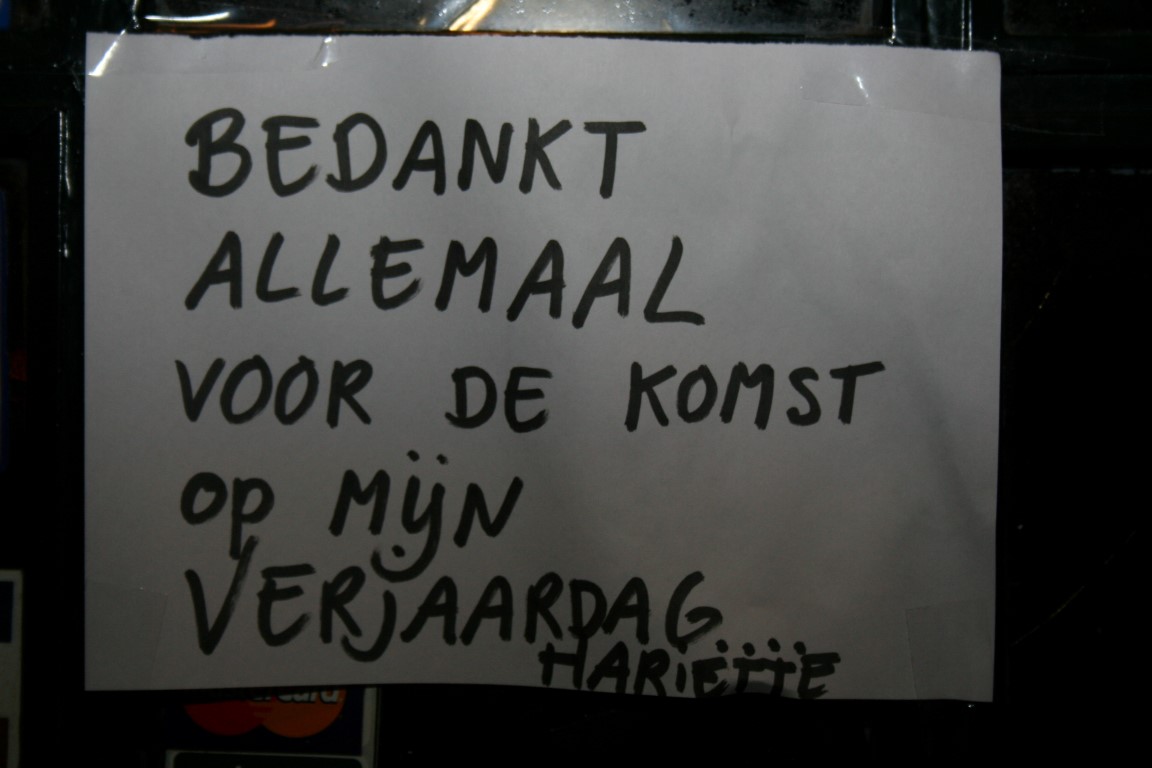 BEDANKT
ALLEMAAL
VOOR DE KOMST
op MijN
VERjAARDAG....
HARiETTE